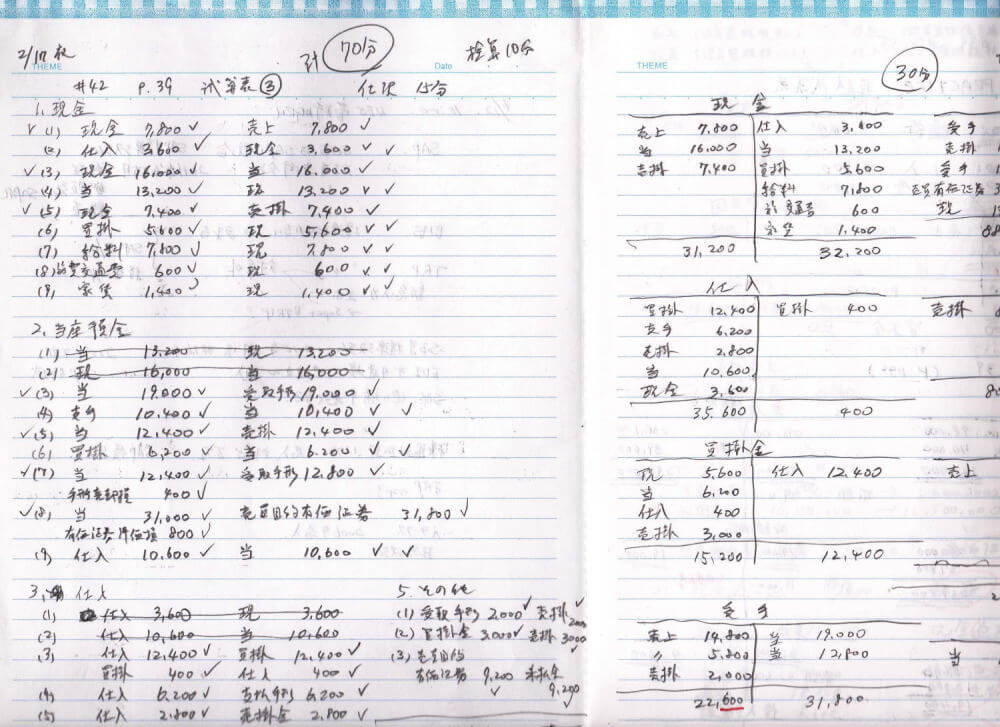 2/17
計 70分
検算10分
THEME
Date
#42 P.39 試算表③ 仕訳 15分
1. 現金
✓ (1) 現金 7,800 ✓ 売上 7,800 ✓
(2) 仕入 3,600 ✓ 現金 3,600 ✓ ✓
✓ (3) 現金 16,000 ✓ 当 16,000 ✓
(4) 当 13,200 ✓ 現 13,200 ✓ ✓
✓ (5) 現金 7,400 ✓ 売掛 7,400 ✓
(6) 買掛 5,600 ✓ 現 5,600 ✓ ✓
(7) 給料 7,800 ✓ 現 7,800 ✓ ✓
(8) 旅費交通費 600 ✓ 現 600 ✓ ✓
(9) 家賃 1,400 ✓ 現 1,400 ✓ ✓
2. 当座預金
(1) 当 13,200 現 13,200
(2) 現 16,000 当 16,000
✓ (3) 当 19,000 ✓ 受取手形 19,000 ✓
(4) 支手 10,400 ✓ 当 10,400 ✓ ✓
✓ (5) 当 12,400 ✓ 売掛 12,400 ✓
(6) 買掛 6,200 ✓ 当 6,200 ✓ ✓
✓ (7) 当 12,400 ✓ 受取手形 12,800 ✓
手形売却損 400 ✓
✓ (8) 当 31,000 ✓ 売買目的有価証券 31,800 ✓
有価証券評価損 800 ✓
(9) 仕入 10,600 ✓ 当 10,600 ✓ ✓
3. 仕入
(1) 仕入 3,600 現 3,600
(2) 仕入 10,600 当 10,600
(3) 仕入 12,400 ✓ 買掛 12,400 ✓
買掛 400 ✓ 仕入 400 ✓
(4) 仕入 6,200 ✓ 支払手形 6,200 ✓
(5) 仕入 2,800 ✓ 売掛金 2,800 ✓
5. その他
(1) 受取手形 2,000 ✓ 売掛 2000
(2) 買掛金 3,000 ✓ 売掛 3000
(3) 売買目的
有価証券 9,200 未払金
9,200
THEME
30分
現金
売上 7,800 仕入 3,600
当 16,000 当 13,200
売掛 7,400 買掛 5,600
給料 7,800
旅交通費 600
家賃 1,400
31,200 32,200
受手
売掛
受手
売買有価証券
現
仕入
買掛 12,400 買掛 400
支手 6,200
売掛 2,800
当 10,600
現金 3,600
35,600 400
売掛
買掛金
現 5,600 仕入 12,400
当 6,200
仕入 400
売掛 3,000
15,200 12,400
売上
受手
売上 14,800 当 19,000
〃 5,800 当 12,800
売掛 2,000
22,600 31,800
当